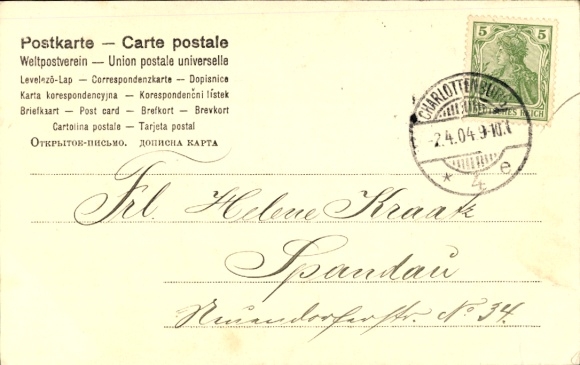 Postkarte — Carte postale
Weltpostverein — Union postale universelle
Levelező-Lap — Correspondenzkarte — Dopisnice
Karta korespondencyjna — Korespondenční lístek
Briefkaart — Post card — Brefkort — Brevkort
Cartolina postale — Tarjeta postal
Открытое-письмо. дописна карта
5 5
DEUTSCHES REICH
CHARLOTTENBURG
-2.4.04.9-10.V.
* 4 e
Frl. Helene Kraatz
Spandau
Neuendorferstr. No 34.